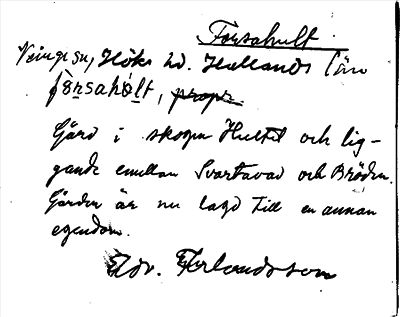 Forsahult
Veinge sn, Höks hd. Hallands län
fòrsahòlt, propr.
Gård i skogen Hultet och lig-
gande emellan Svartavad och Bröden.
Gården är nu lagd till en annan
egendom.
Edv. Erlandsson